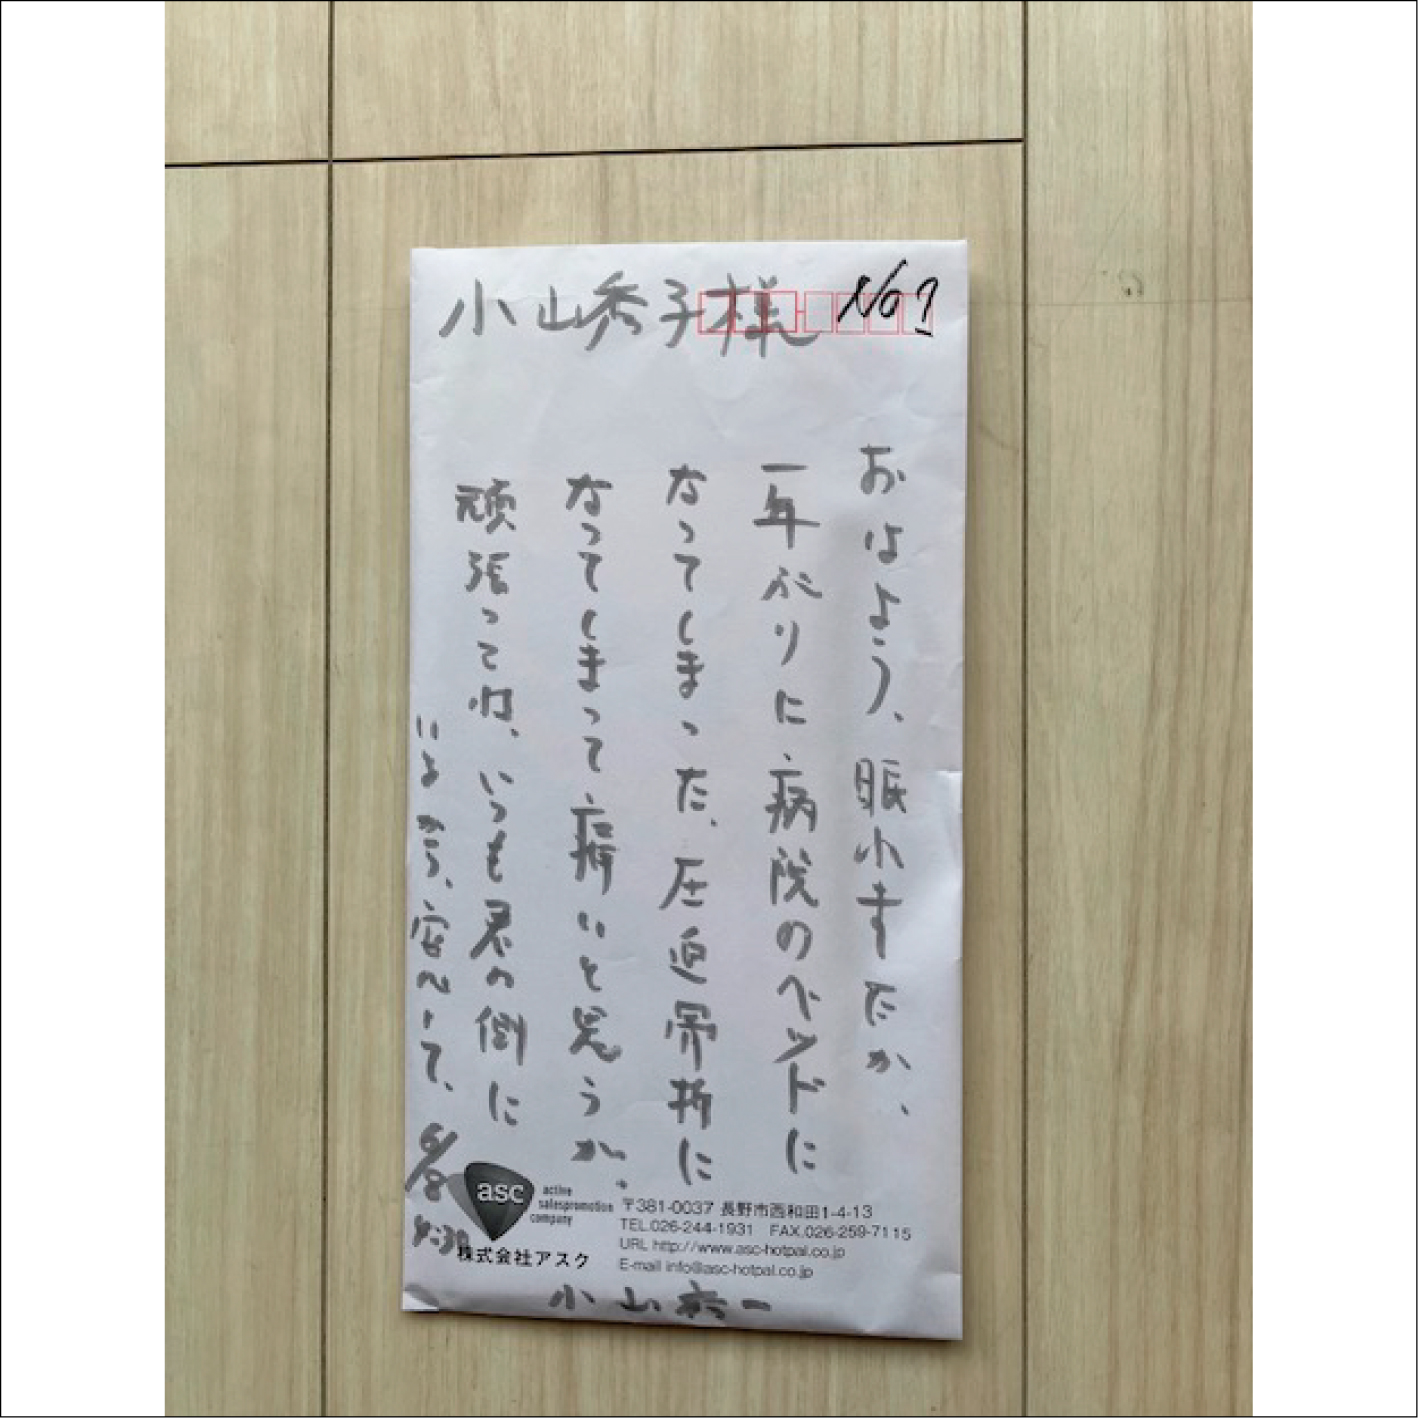 小山秀子様
No1
おはよう、眠れますたか、
一年ぶりに病院のベッドに
なってしまった、圧迫骨折に
なってしまって痛いと思うが、
頑張ってね、いつも君の側に
いるから、安心して、
6/8
4:30
asc
active
salespromotion
company
株式会社アスク
〒381-0037 長野市西和田1-4-13
TEL.026-244-1931 FAX.026-259-7115
URL http://www.asc-hotpal.co.jp
E-mail info@asc-hotpal.co.jp